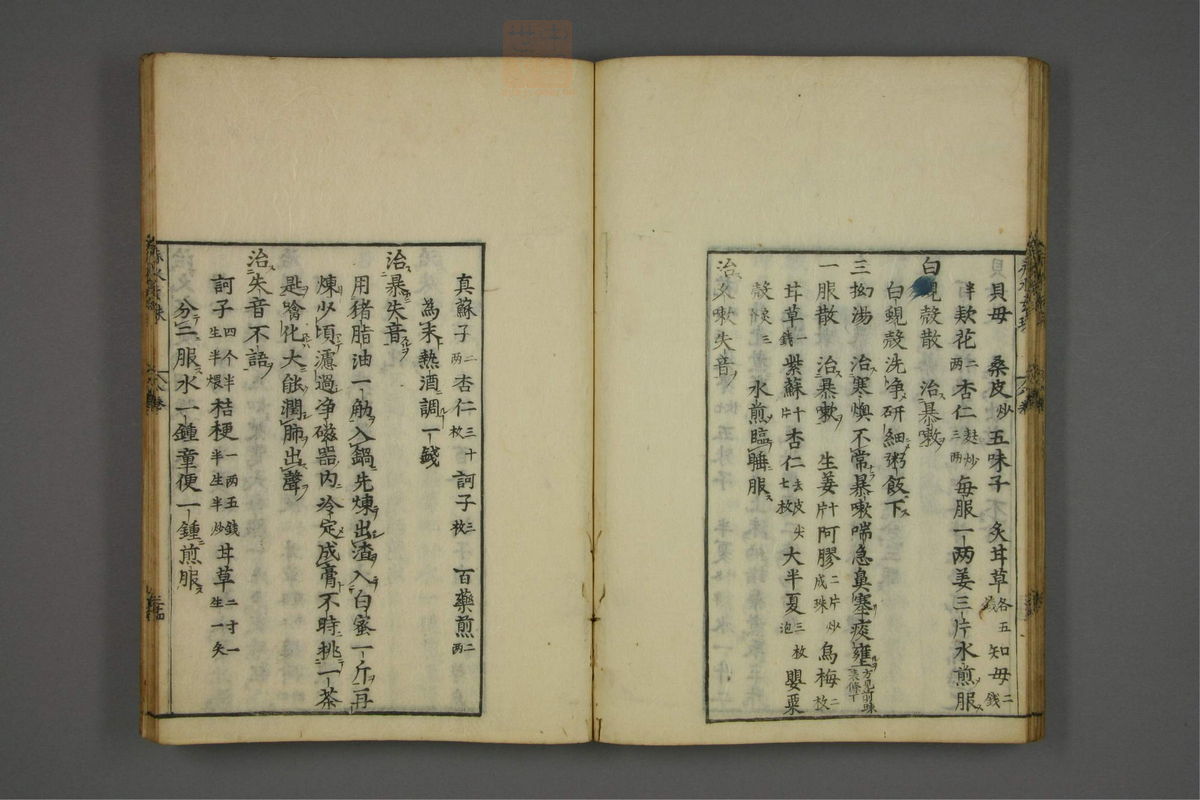 貝母 桑皮炒 五味子 炙甘草各五錢 知母二錢
半 欵花二両 杏仁麩炒三両 每服一両姜三片水煎服
白蜆殼散 治暴嗽
白蜆殼洗净研細粥飯下
三拗湯 治寒燠不常暴嗽喘急鼻塞痰壅
一服散 治暴嗽 生姜十片 阿膠二片炒成珠 烏梅二枚
甘草一錢 紫蘇十片 杏仁去皮尖七枚 大半夏三枚泡 嬰粟
殼三 水煎臨睡服
治久嗽失音
真蘇子二両 杏仁三十枚 訶子三枚 百藥煎二両
為末熱酒調一錢
治暴失音
用猪脂油一觔入鍋先煉出渣入白蜜一斤再
煉少頃濾過净磁器内冷定成膏不時挑一茶
匙噙化大能潤肺出聲
治失音不語
訶子四个半生半煨 桔梗一両五錢半生半炒 甘草二寸一生一炙
分二服水一鍾童便一鍾煎服